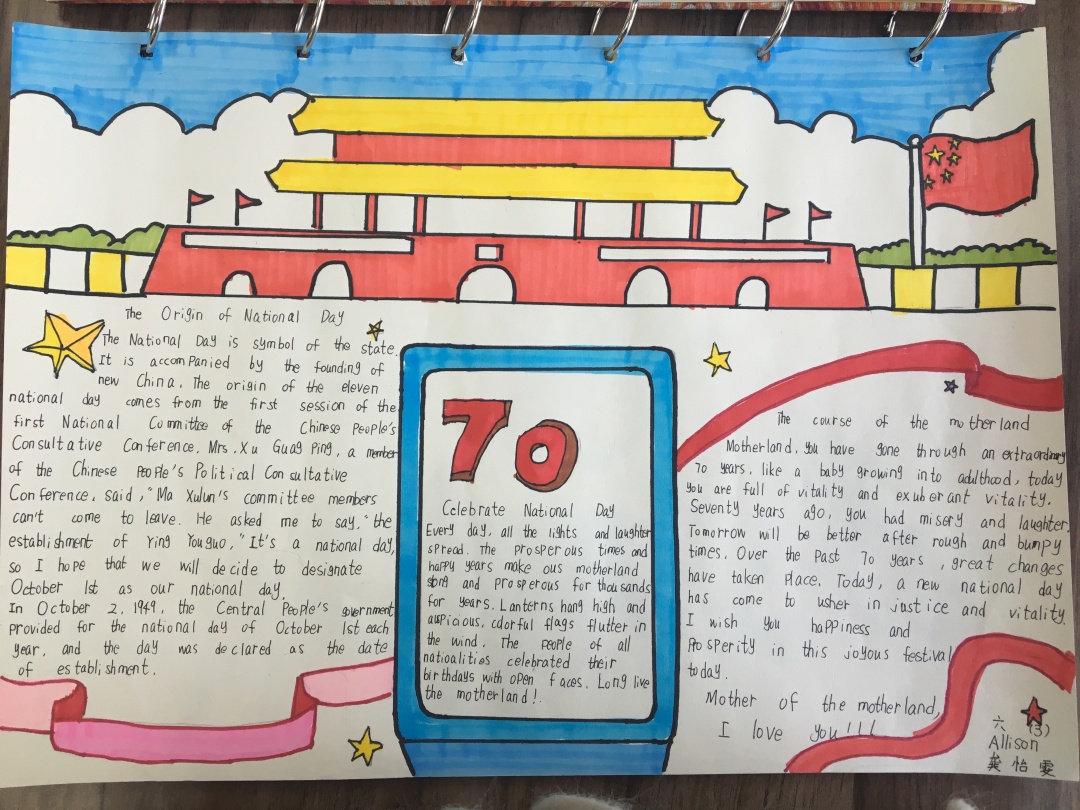 The Origin of National Day
The National Day is symbol of the state.
It is accompanied by the founding of
new China. The origin of the eleven
national day comes from the first session of the
First National Committee of the Chinese People's
Consultative Conference. Mrs. Xu Guag Ping, a member
of the Chinese People's Political Consultative
Conference, said, "Ma Xulun's committee members
can't come to leave. He asked me to say, "the
establishment of Ying Youguo," It's a national day,
so I hope that we will decide to designate
October 1st as our national day.
In October 2, 1949, the Central People's government
provided for the national day of October 1st each
year, and the day was declared as the date
of establishment.
70
Celebrate National Day
Every day, all the lights and laughter
spread. The prosperous times and
happy years make ous motherland
and prosperous for thousands
for years. Lanterns hang high and
auspicious, colorful flags flutter in
the wind. The people of all
natioalities celebrated their
birthdays with open faces. Long live
the motherland!
The course of the motherland
Motherland, you have gone through an extraordinary
70 years, like a baby growing into adulthood, today
you are full of vitality and exuberant vitality.
Seventy years ago, you had misery and laughter.
Tomorrow will be better after rough and bumpy
times. Over the past 70 years, great changes
have taken place. Today, a new national day
has come to usher in justice and vitality.
I wish you happiness and
prosperity in this joyous festival
today.
Mother of the motherland,
I love you!!!
六(3)
Allison
龚怡雯